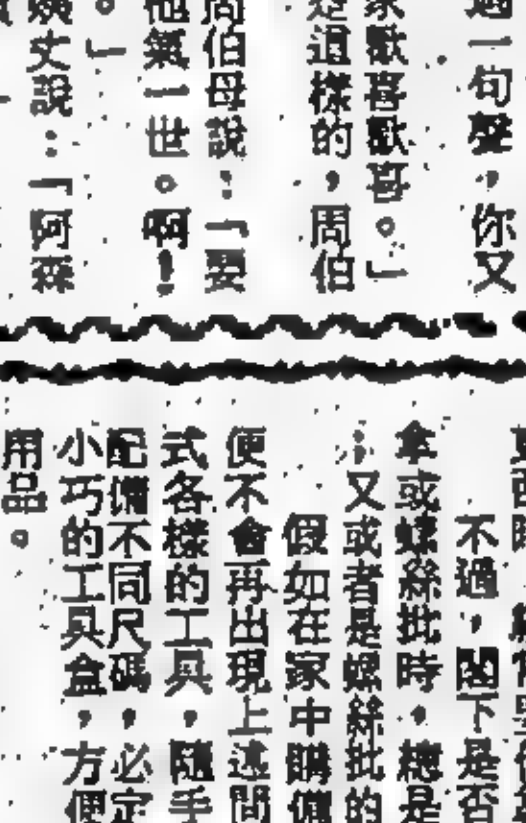 過一句聲，你又
家歡喜歡喜。」
是這樣的，周伯
周伯母說：「要
他氣一世。啊！
。」
姨丈說：「阿森
不過，閣下是否
拿或螺絲批時，總是
：又或者是螺絲批的
假如在家中購備
便不會再出現上述問
式各樣的工具，隨手
配備不同尺碼，必定
小巧的工具盒，方便
用品。